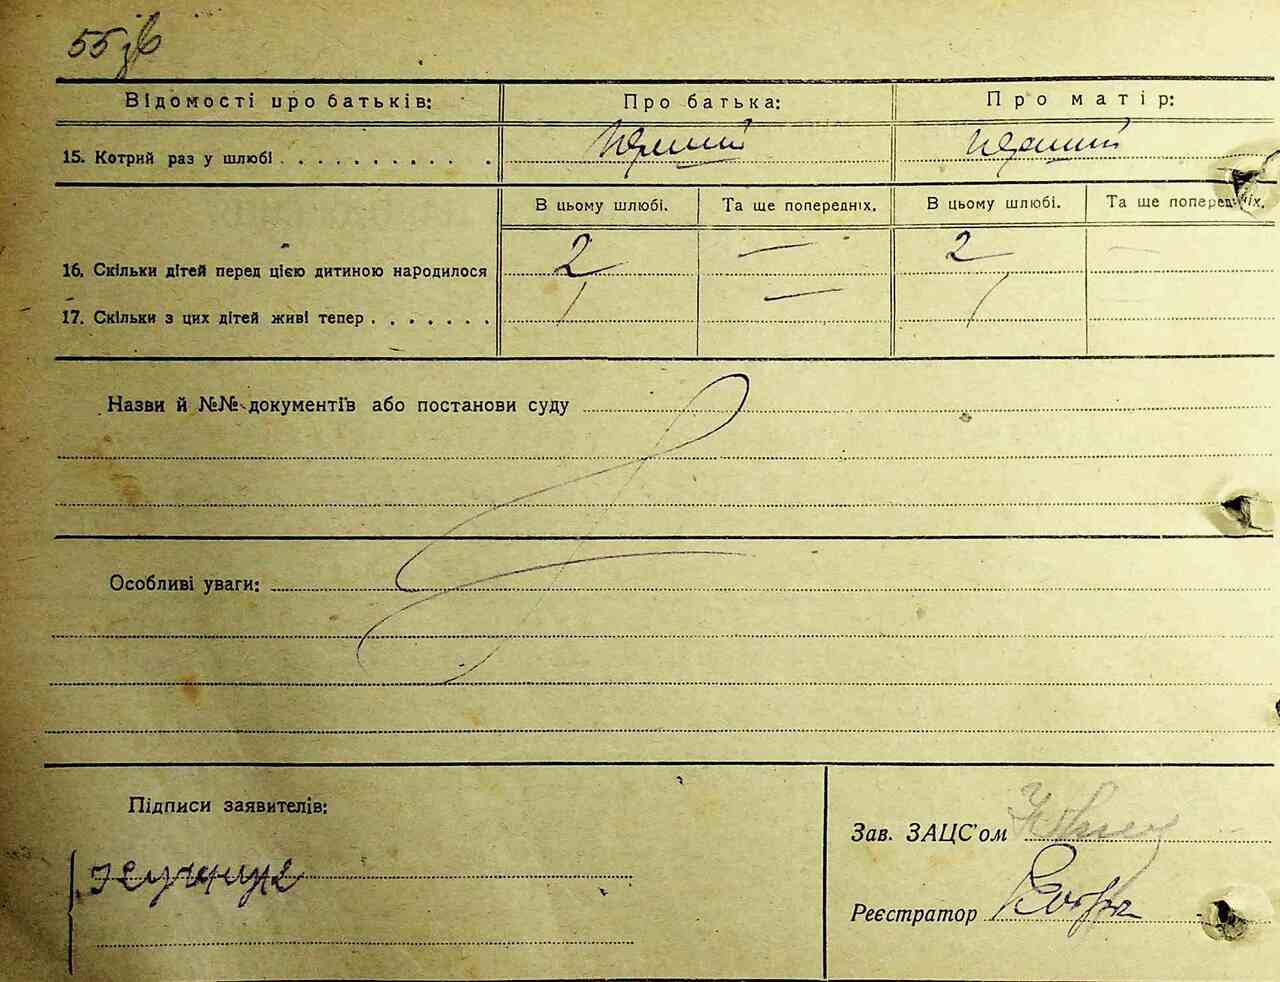 55зв
Відомості про батьків: Про батька: Про матір:
15. Котрий раз у шлюбі . . . . . . . . . . . перший перший
В цьому шлюбі. Та ще попередніх. В цьому шлюбі. Та ще попередніх.
16. Скільки дітей перед цією дитиною народилося 2 — 2 —
17. Скільки з цих дітей живі тепер . . . . . . . 1 — 1 —
Назви й №№ документів або постанови суду
Особливі уваги:
Підписи заявителів:
Зав. ЗАЦС'ом
Реєстратор